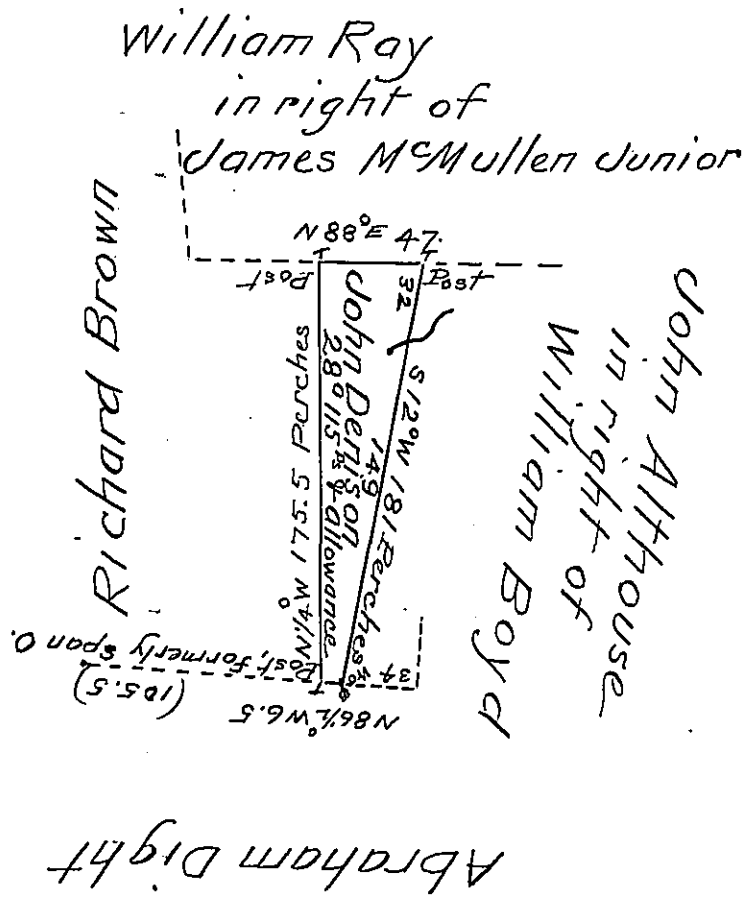 William Ray
in right of
James McMullen Junior
Richard Brown
N 88° E 47.
Post
Post
John Denison
28a 115ps & allowance
N¼°W 175.5 Perches
32
149
S 12° W 181 Perches
John Althouse
in right of
William Boyd
Post, formerly Span O.
(105.5)
34
N86½°W 6.5
Abraham Dight